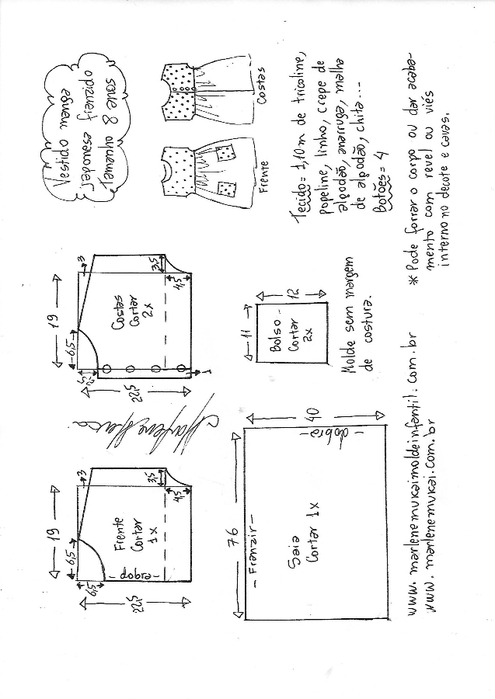 Vestido manga
japonesa franzido
tamanho 8 anos
Frente
Costas
Tecido = 1,10m de tricoline,
popeline, linho, crepe de
algodão, anarruga, malha
de algodão, chita...
Botões = 4
* Pode forrar o corpo ou dar acaba-
mento com revel ou viés
interno no decote e cavas.
19
6,5
3
3,5
4,5
6,5
22,5
Frente
Cortar
1x
dobra
Marlene Mukai
19
6,5
3
3,5
4,5
2,5
22,5
1
Costas
Cortar
2x
11
12
Bolso
Cortar
2x
Molde sem margem
de costura.
76
40
- Franzir -
- dobra -
Saia
Cortar 1x
www.marlenemukaimoldeinfantil.com.br
www.marlenemukai.com.br